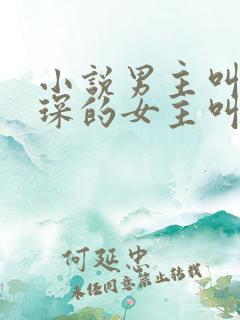 小說男主叫
琛的女主叫
何延忠
未经同意禁止转载